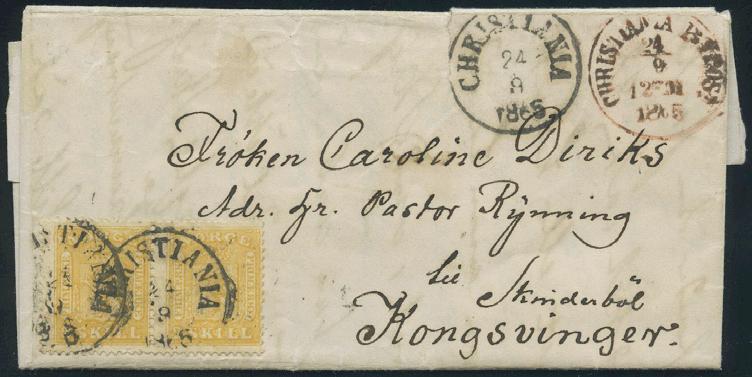 CHRISTIANIA
24
9
1865
CHRISTIANIA
24
9
1865
Frøken Caroline Diriks
Adr. Hr. Pastor Rÿnning
Skinderböl
Kongsvinger.
CHRISTIANIA
9
1865
SKILL
SKILL